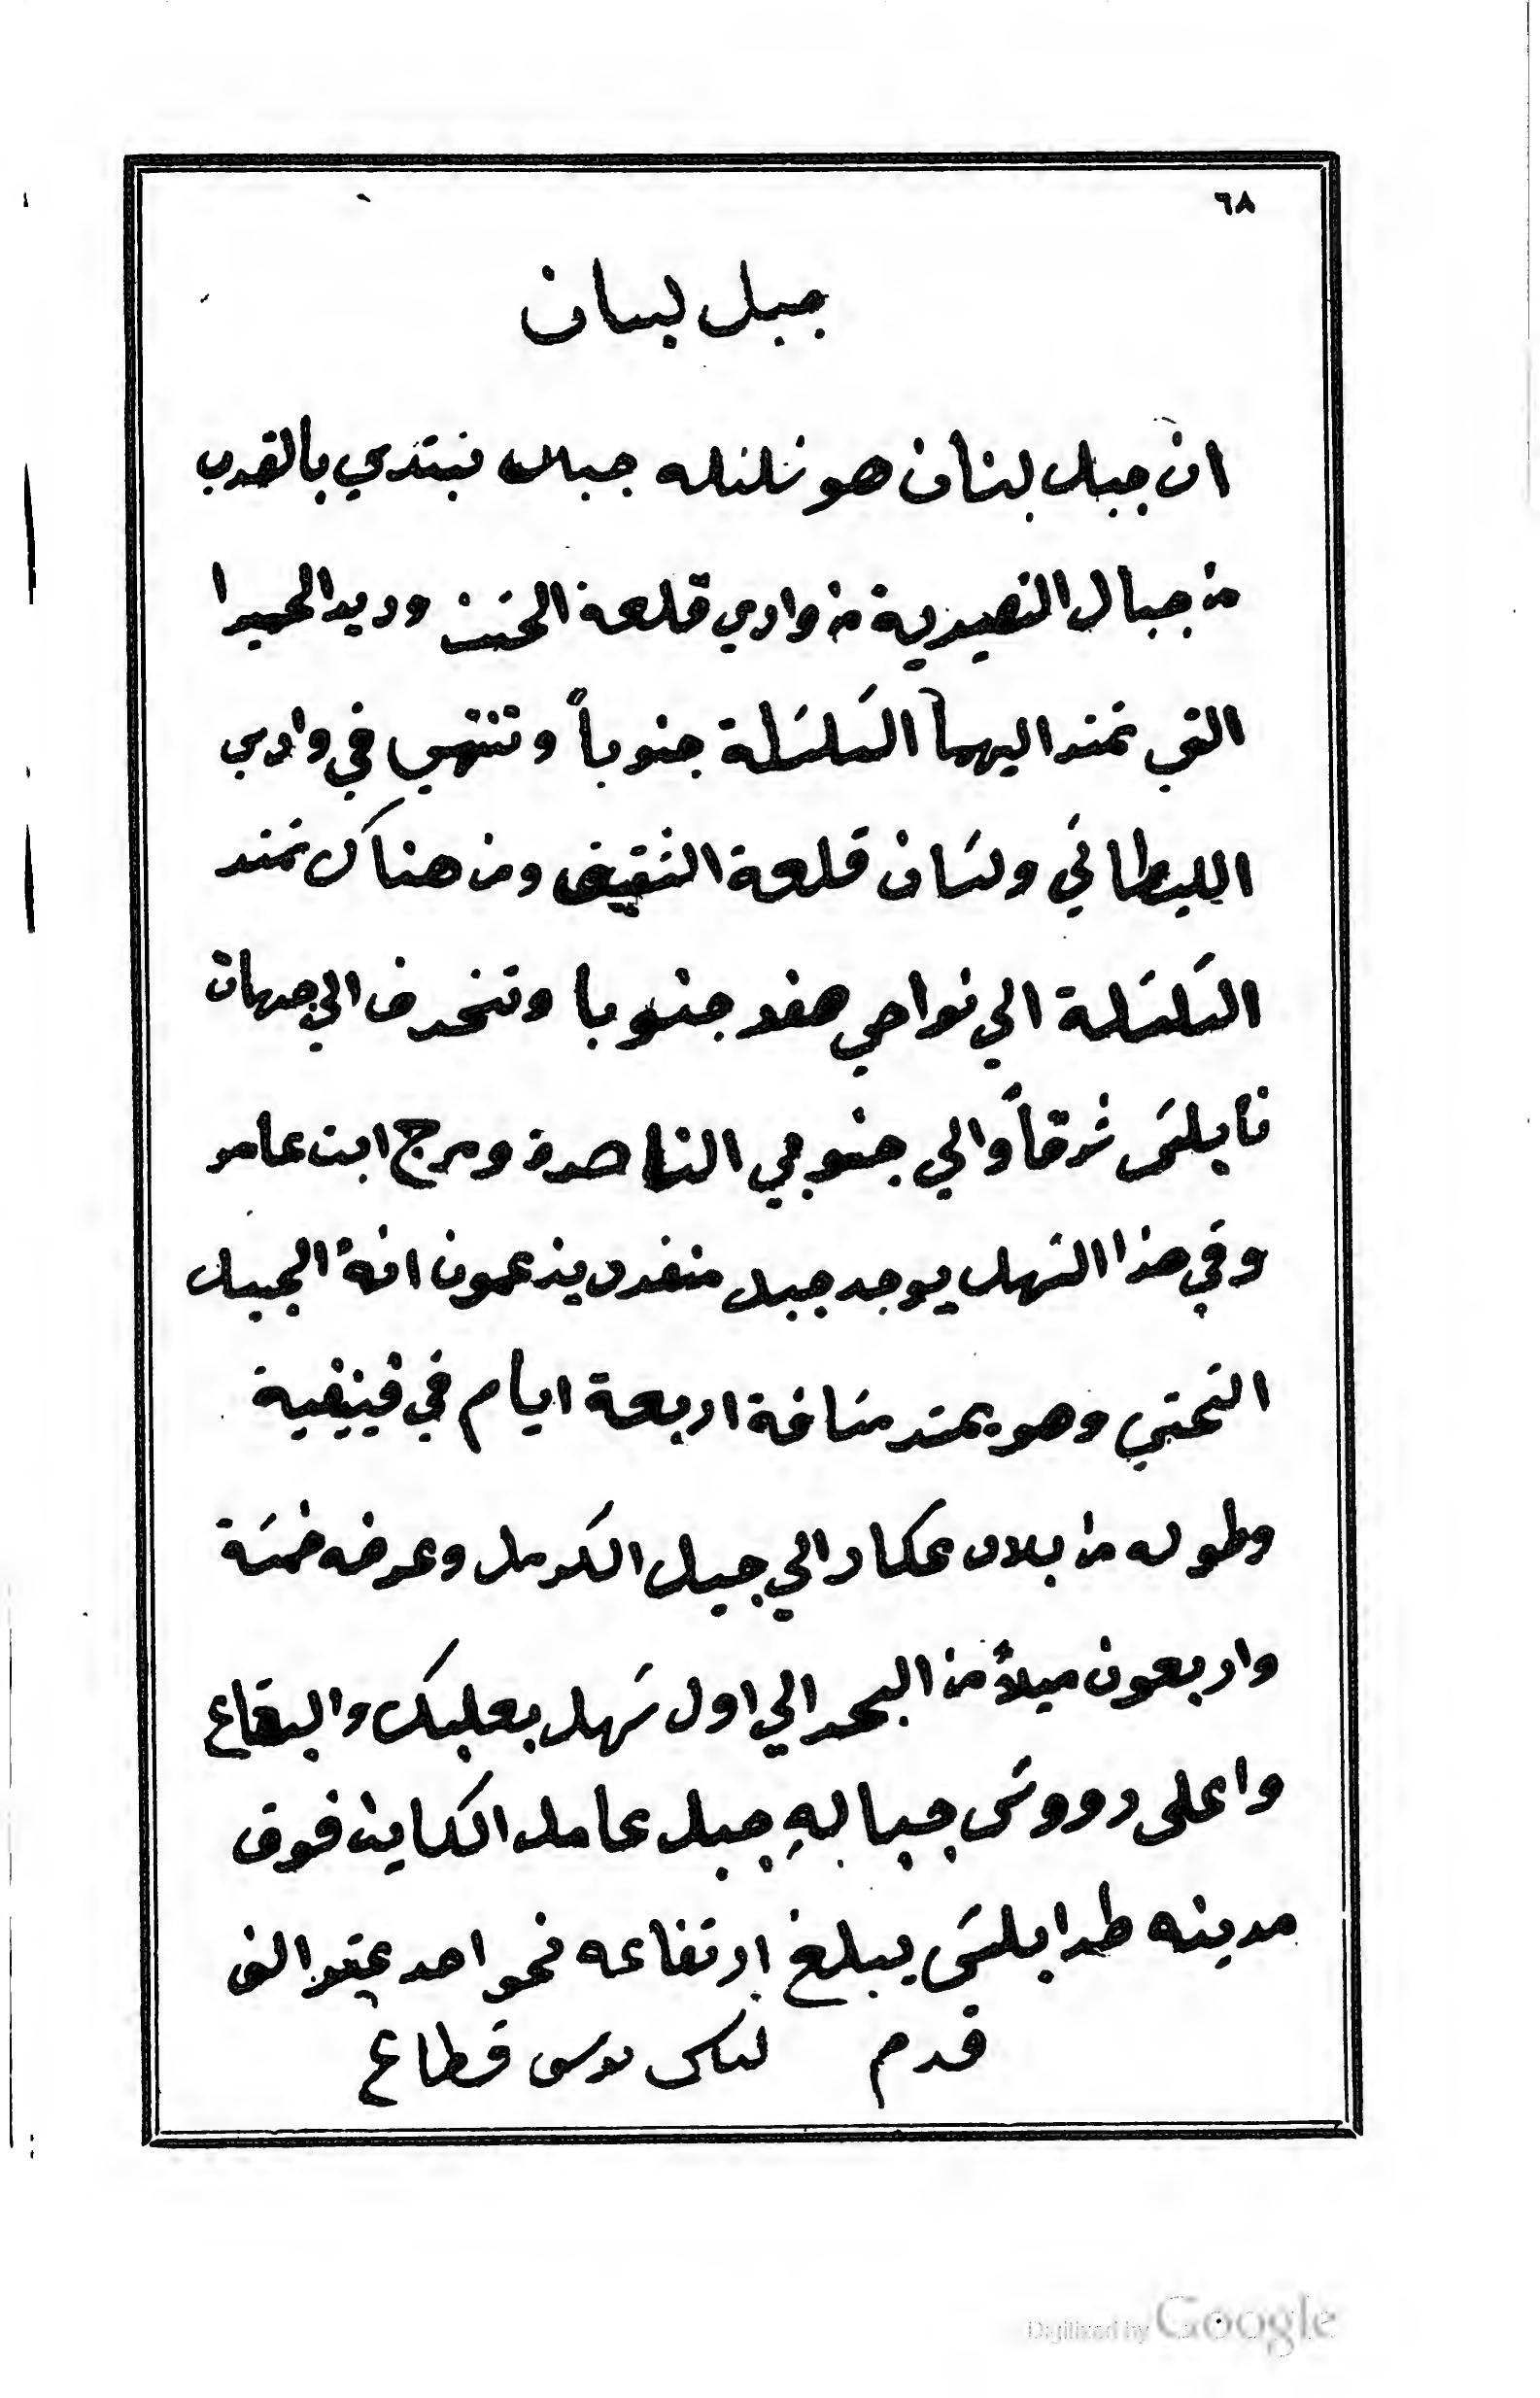 ٦٨
جبل لبنان
ان جبل لبنان هو سلسله جبال تبتدي بالقرب
من جبال النصيرية من وادي قلعة الحصن ودير الحميرا
التي تمتد اليهما السلسلة جنوباً وتنتهي في وادي
الليطاني ولسان قلعة الشقيف ومن هناك تمتد
السلسلة الي نواحي صفد جنوبا وتنحرف الي جهات
نابلس شرقاً والي جنوبي الناصرة ومرج ابن عامر
وفي هذا السهل يوجد جبل منفرد يزعمون انهُ الجبل
التحتي وهو يمتد مسافة اربعة ايام في فينيقية
وطوله من بلاد عكار الي جبل الكرمل وعرضه خمسة
واربعون ميلاً من البحر الي اول سهل بعلبك والبقاع
واعلى رووس جبالهِ جبل عامل الكاين فوق
مدينه طرابلس يبلغ ارتفاعه نحو احد عشر الف
قدم قطاع
Digitized by Google